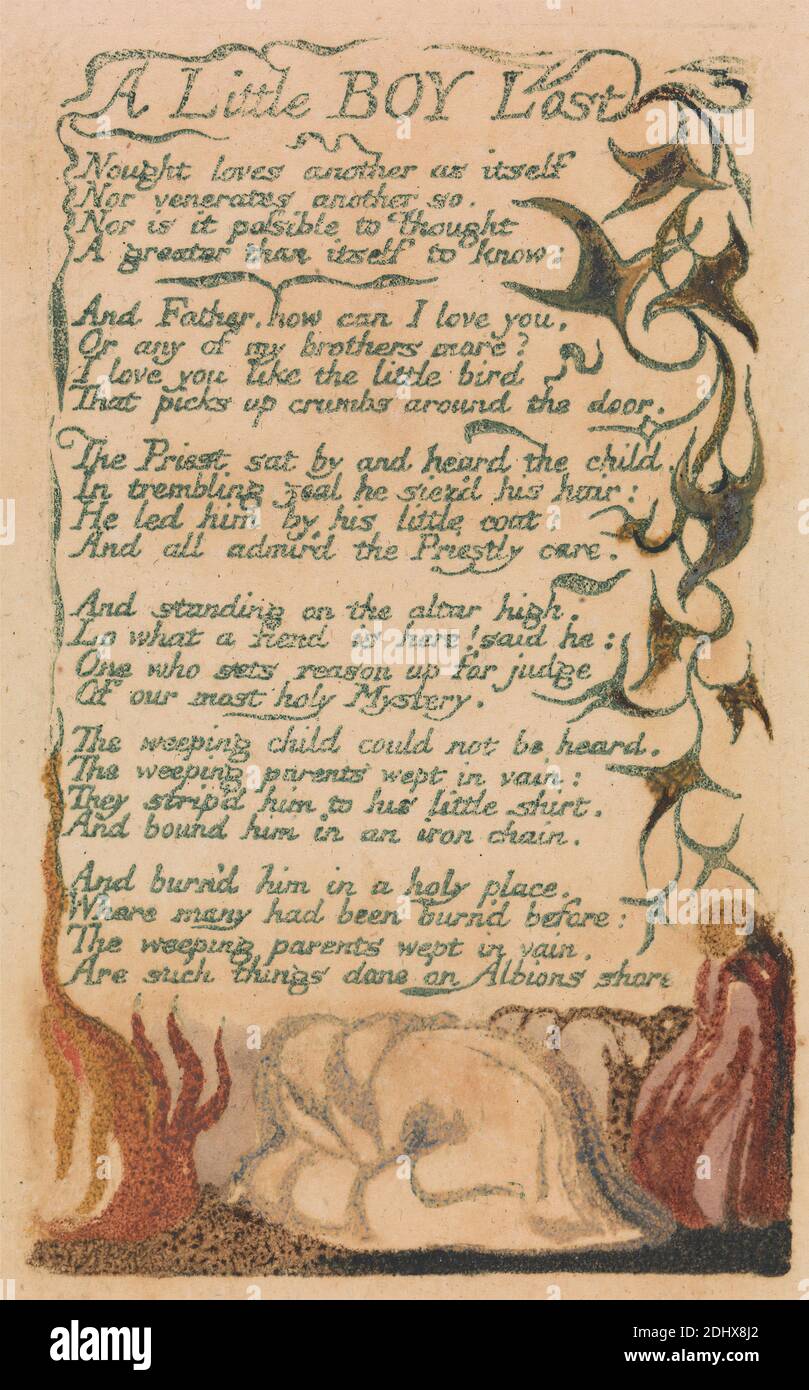 A Little BOY Lost
Nought loves another as itself
Nor venerates another so.
Nor is it possible to Thought
A greater than itself to know:
And Father, how can I love you,
Or any of my brothers more?
I love you like the little bird
That picks up crumbs around the door.
The Priest sat by and heard the child,
In trembling zeal he siez'd his hair:
He led him by his little coat:
And all admir'd the Priestly care.
And standing on the altar high,
Lo what a fiend is here! said he:
One who sets reason up for judge
Of our most holy Mystery.
The weeping child could not be heard.
The weeping parents wept in vain:
They strip'd him to his little shirt.
And bound him in an iron chain.
And burn'd him in a holy place,
Where many had been burn'd before:
The weeping parents wept in vain.
Are such things done on Albions shore
alamy
Image ID: 2DHX8J2
www.alamy.com